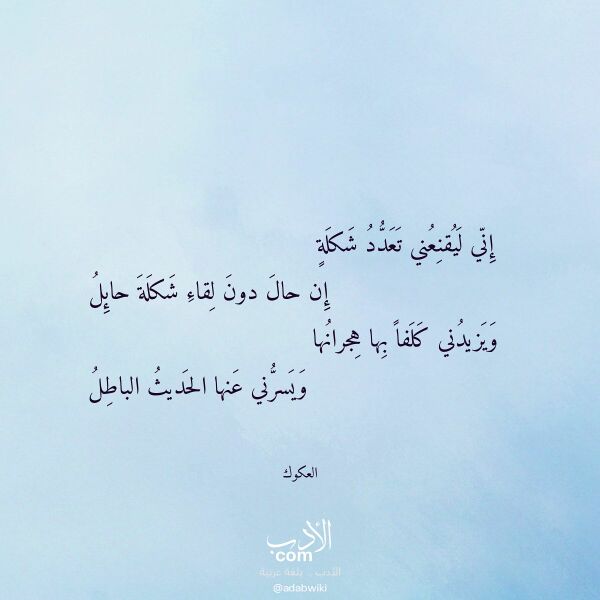 إِنّي لَيُقنِعُني تَعَدُّدُ شَكلَةٍ
إِن حالَ دونَ لِقاءِ شَكلَةَ حائِلُ
وَيَزيدُني كَلَفاً بِها هِجرانُها
وَيَسرُّني عَنها الحَديثُ الباطِلُ
العكوك
الأدب
com
الأدب .. بلغة عربية
@adabwiki